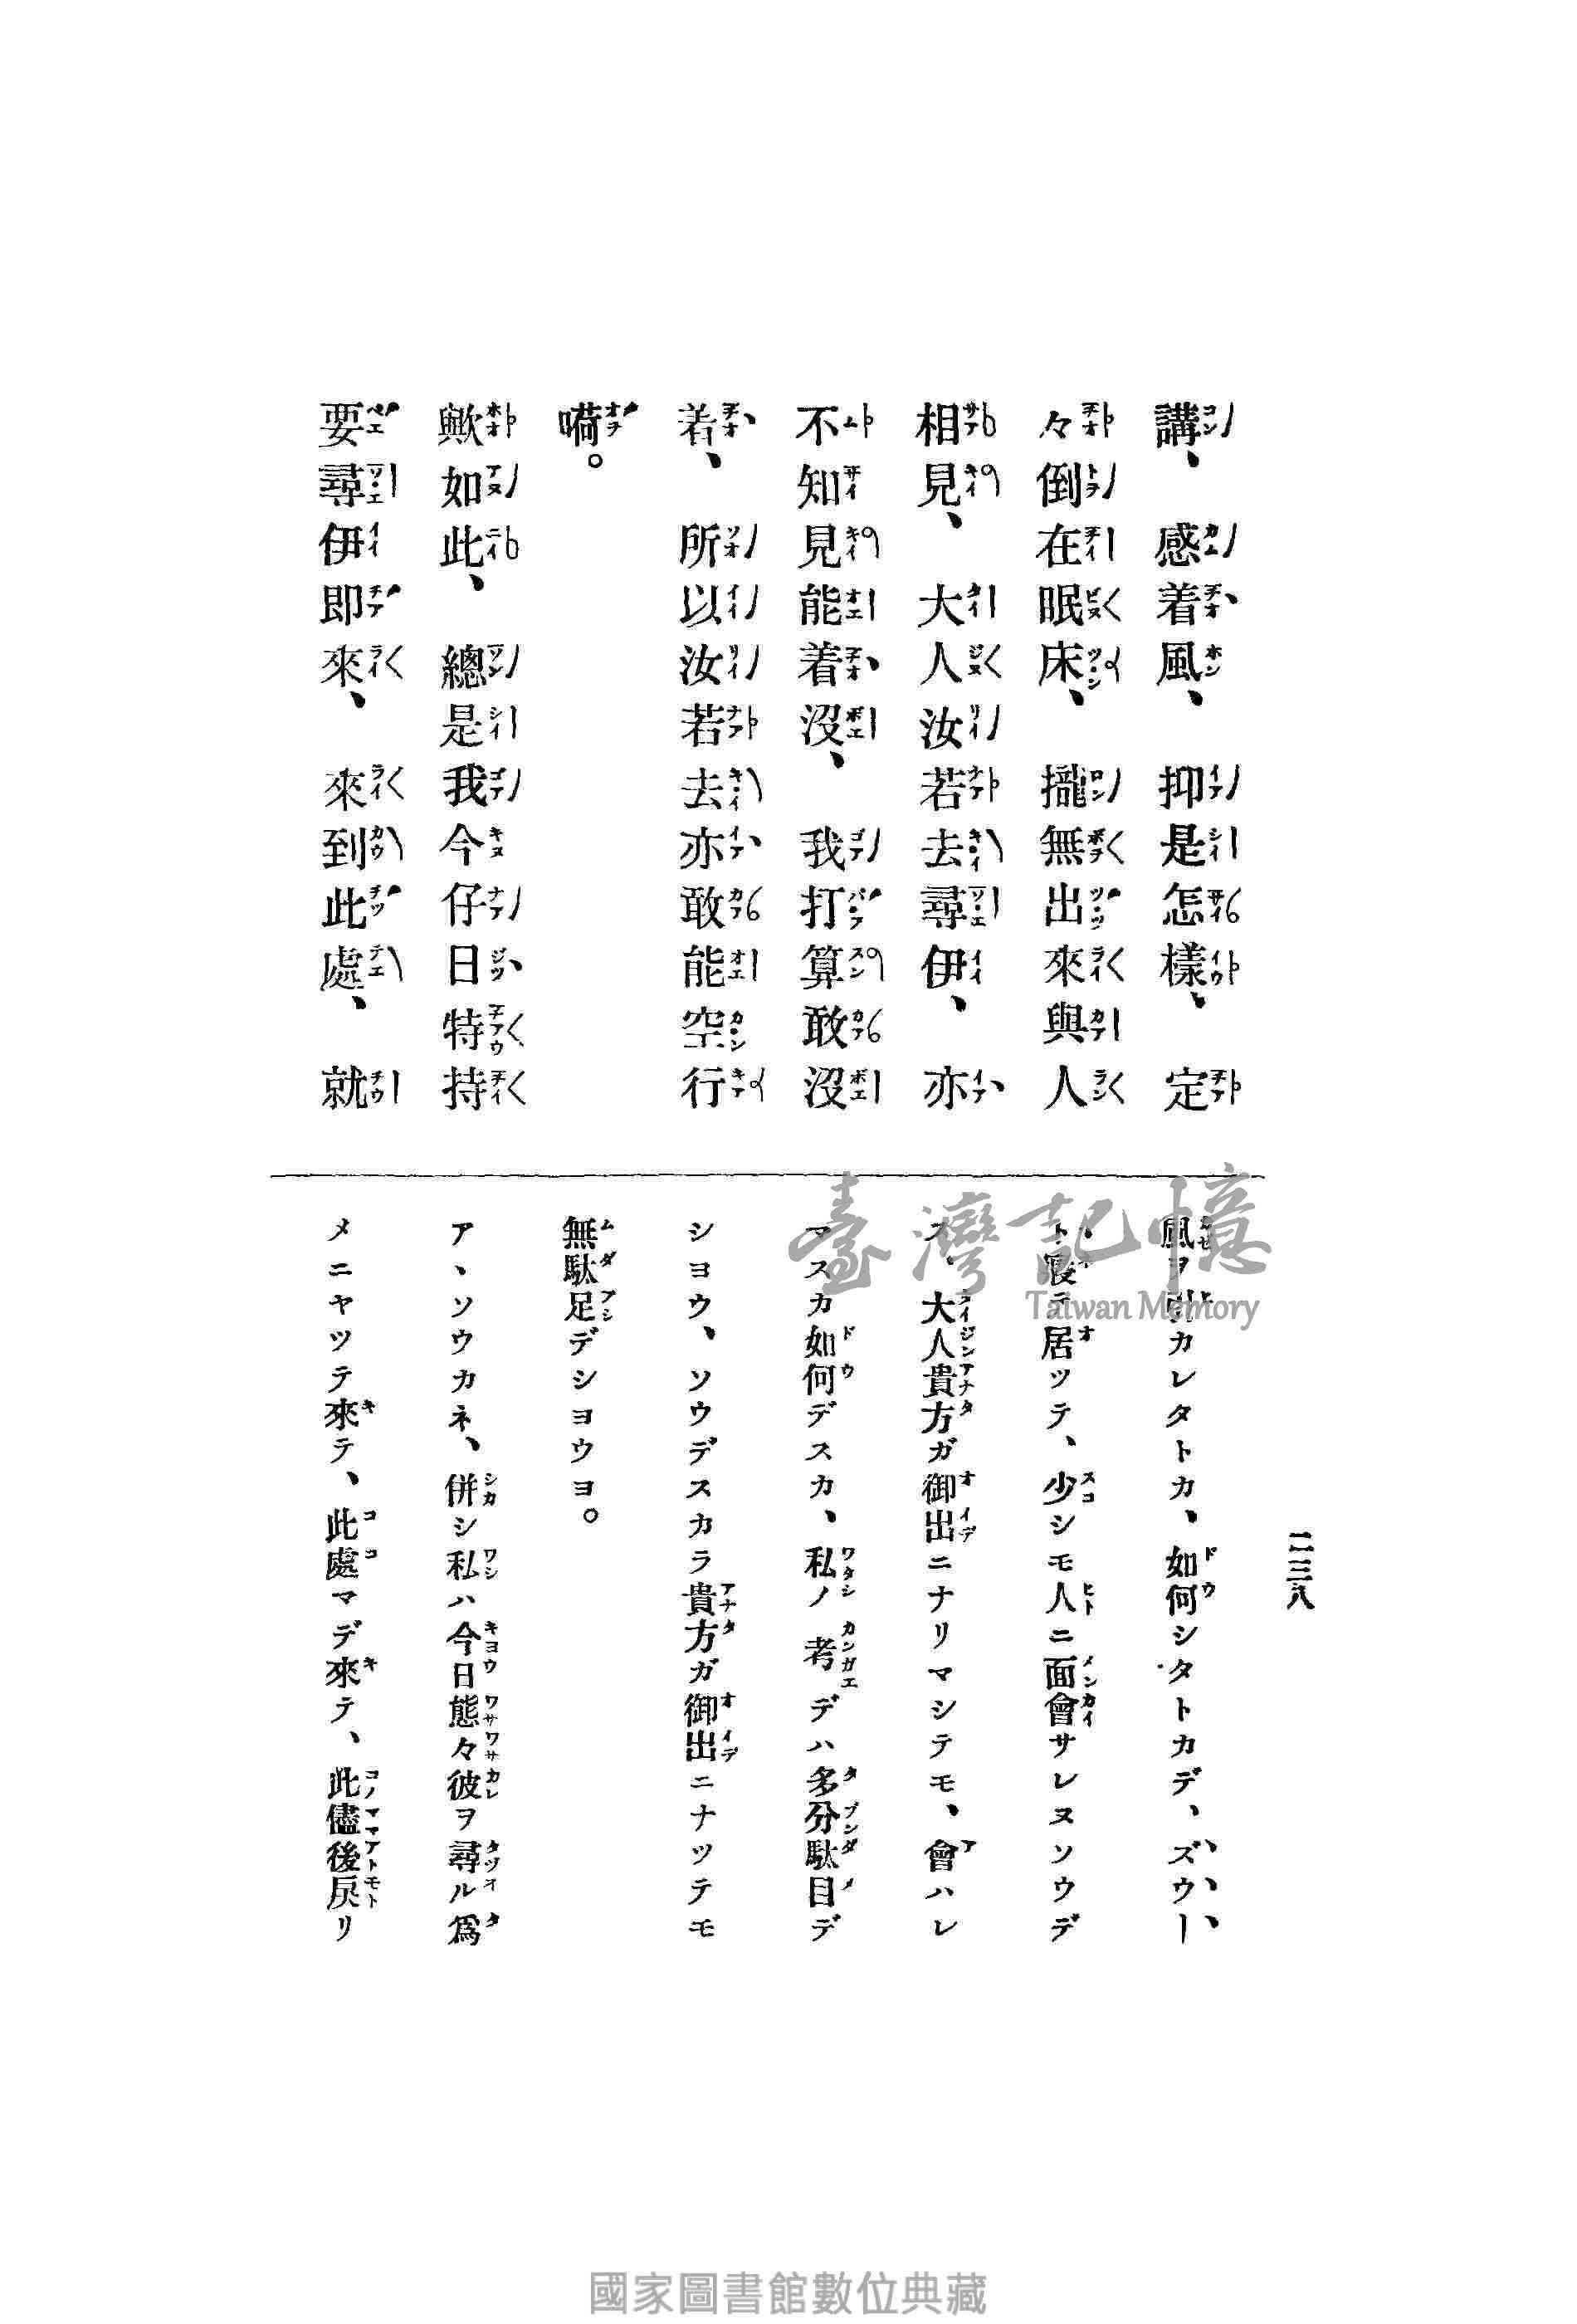 講、感着風、抑是怎樣、定
々倒在眠床、攏無出來與人
相見、大人汝若去尋伊、亦
不知見能着沒、我打算敢沒
着、所以汝若去亦敢能空行
嗬。
歟如此、總是我今仔日特持
要尋伊即來、來到此處、就
風ヲ引カレタトカ、如何シタトカデ、ズウー
ト寢テ居ツテ、少シモ人ニ面會サレヌソウデ
ス、大人貴方ガ御出ニナリマシテモ、會ハレ
マスカ如何デスカ、私ノ考デハ多分駄目デ
シヨウ、ソウデスカラ貴方ガ御出ニナツテモ
無駄足デシヨウヨ。
アヽソウカネ、併シ私ハ今日態々彼ヲ尋ル爲
メニヤツテ來テ、此處マデ來テ、此儘後戾リ
二三八
臺灣記憶
Taiwan Memory
國家圖書館數位典藏